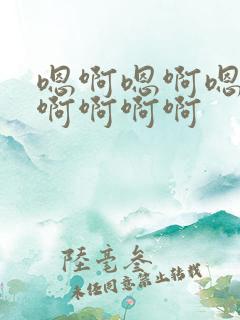 嗯啊嗯啊嗯
啊啊啊啊
陸毫叁
未经同意禁止转载